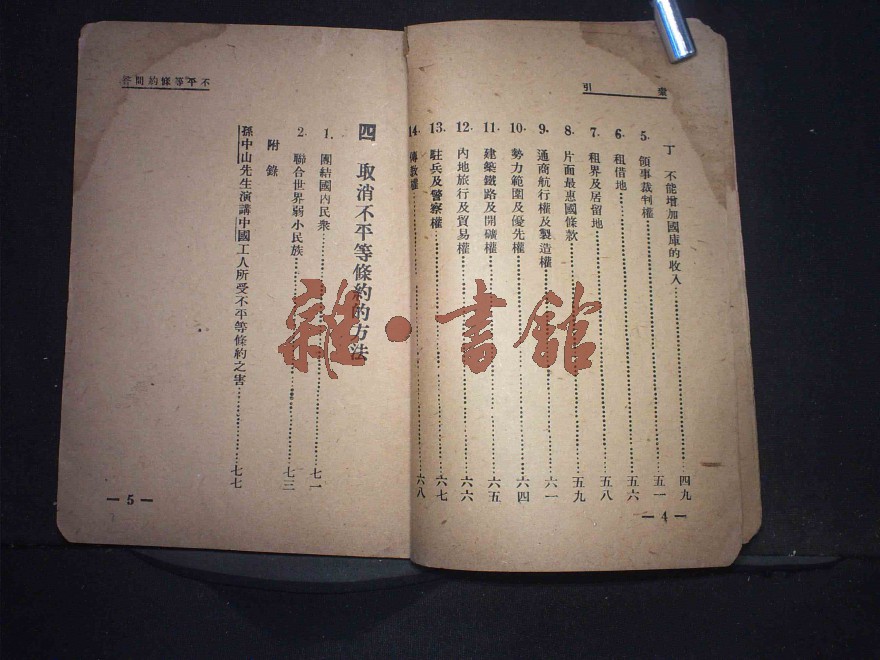 索引
丁 不能增加國庫的收入 四九
5. 領事裁判權 五一
6. 租借地 五六
7. 租界及居留地 五八
8. 片面最惠國條款 五九
9. 通商航行權及製造權 六一
10. 勢力範圍及優先權 六四
11. 建築鐵路及開礦權 六五
12. 內地旅行及貿易權 六六
13. 駐兵及警察權 六七
14. 傳教權 六八
— 4 —
不平等條約問答
四 取消不平等條約的方法
1. 團結國內民衆 七一
2. 聯合世界弱小民族 七三
附錄
孫中山先生演講中國工人所受不平等條約之害 七七
— 5 —
雜·書館